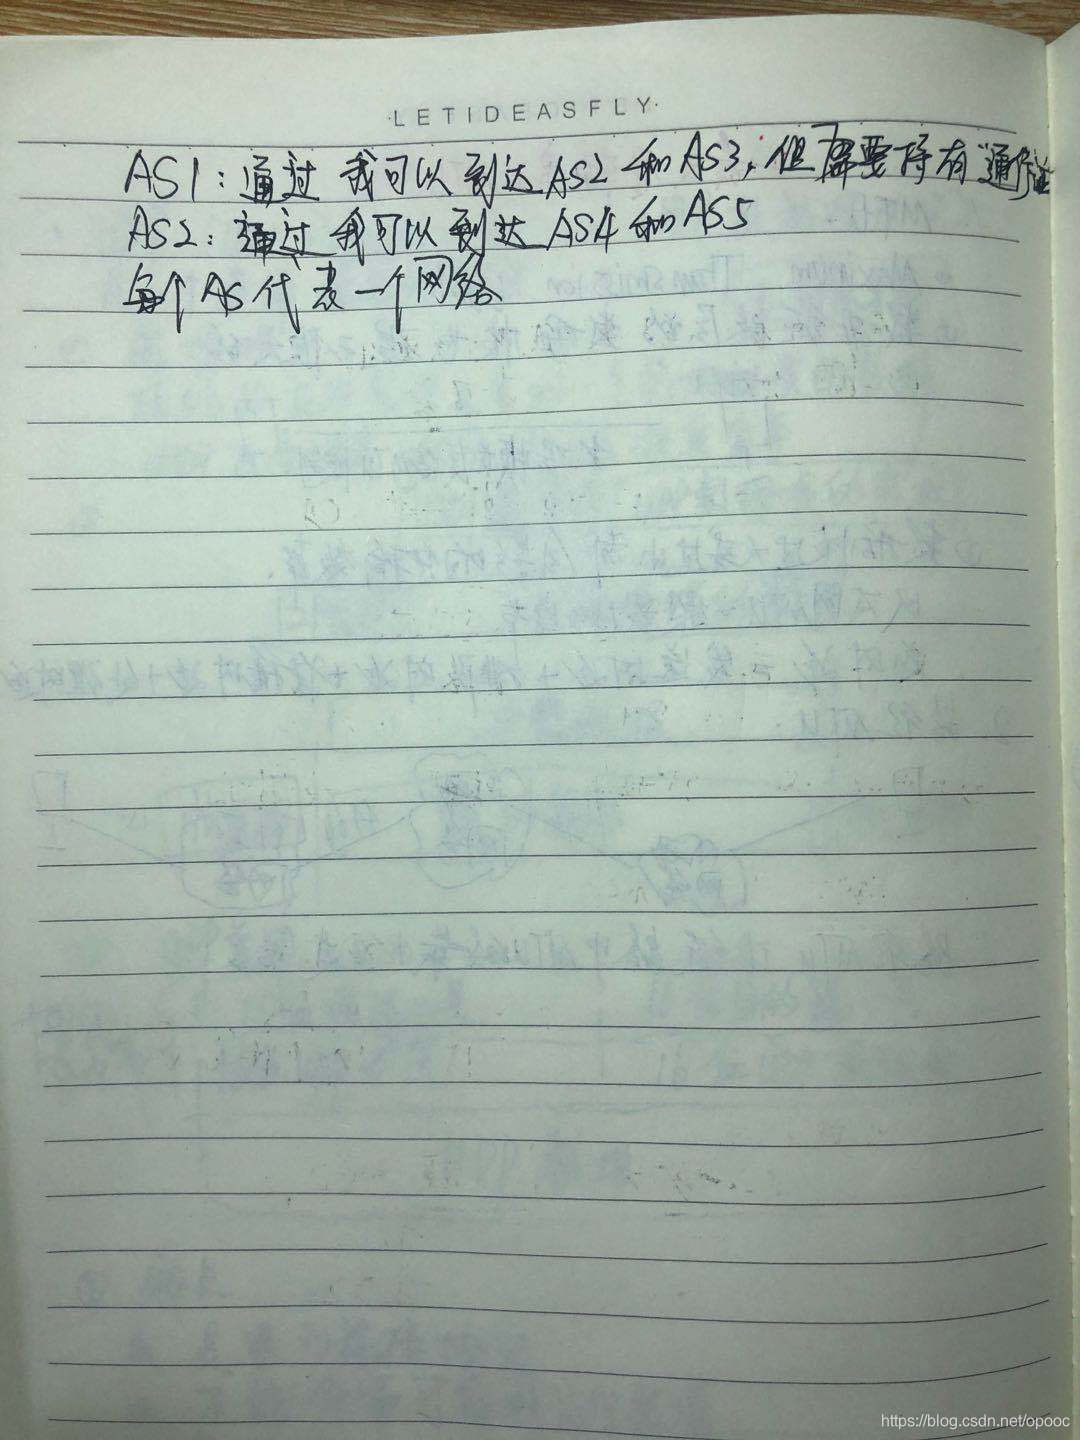 ·LETIDEASFLY·
AS1：通过我可以到达AS2和AS3，但需要持有"通行证
AS2：通过我可以到达AS4和AS5
每个AS代表一个网络
https://blog.csdn.net/opooc